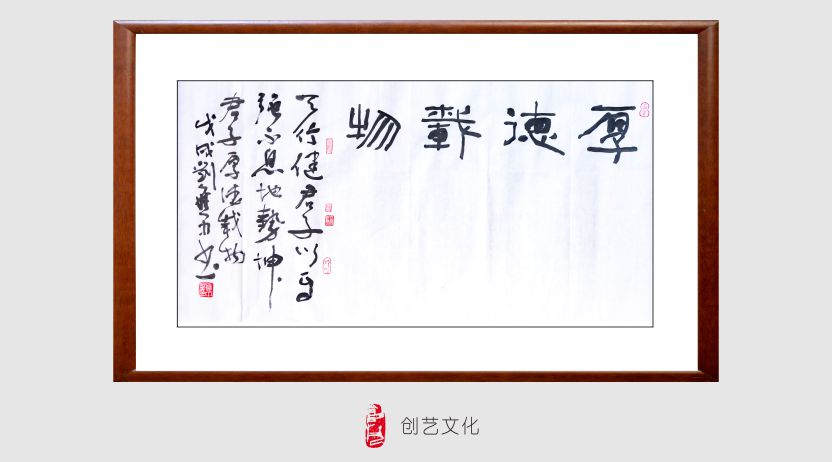 厚德載物
天行健君子以自
强不息地勢坤
君子厚德载物
戊戌劉
创艺文化